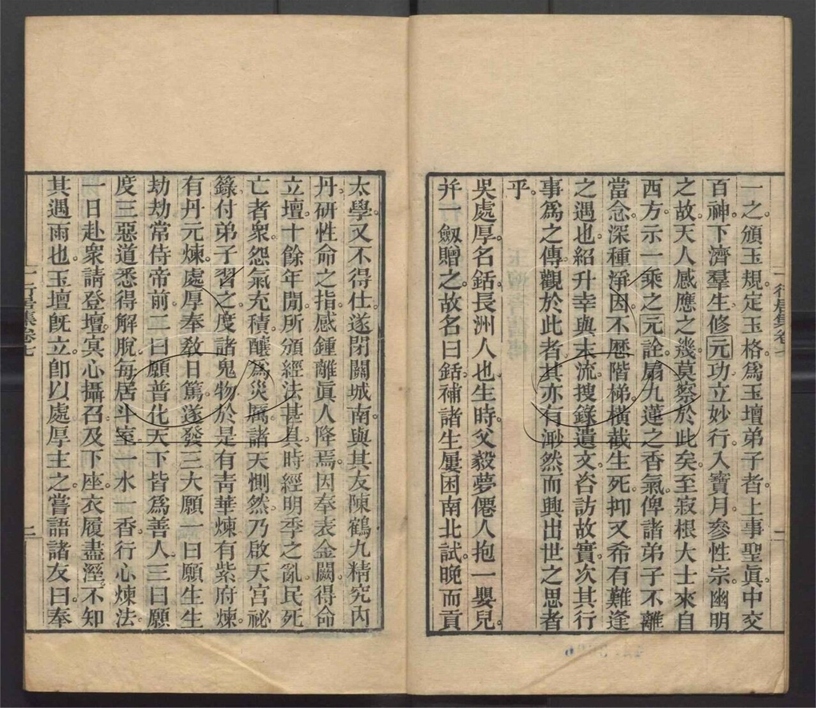 一之頒玉規定玉格爲玉壇弟子者上事聖眞中交
百神下濟羣生修元功立妙行入寶月參性宗幽明
之故天人感應之幾莫察於此矣至寂根大士來自
西方示一乘之元詮扇九蓮之香氣俾諸弟子不離
當念深種淨因不歷階梯橫截生死抑又希有難逢
之遇也紹升幸與末流搜錄遺文咨訪故實次其行
事爲之傳觀於此者其亦有渺然而興出世之思者
乎
吳處厚名銛長洲人也生時父毅夢僊人抱一嬰兒
幷一劔贈之故名曰銛補諸生屢困南北試晚而貢
太學又不得仕遂閉關城南與其友陳鶴九精究內
丹研性命之指感鍾離眞人降焉因奉表金闕得命
立壇十餘年開所頒經法甚具時經明季之亂民死
亡者衆怨氣充積釀爲災厲諸天惻然乃啟天宮祕
籙付弟子習之度諸鬼物於是有靑華煉有紫府煉
有丹元煉處厚奉敎日篤遂發三大願一曰願生生
劫劫常侍帝前二曰願普化天下皆爲善人三曰願
度三惡道悉得解脫每居斗室一水一香行心煉法
一日赴衆請登壇冥心攝召及下座衣履盡溼不知
其遇雨也玉壇旣立卽以處厚主之嘗語諸友曰奉
一行居集卷七
二